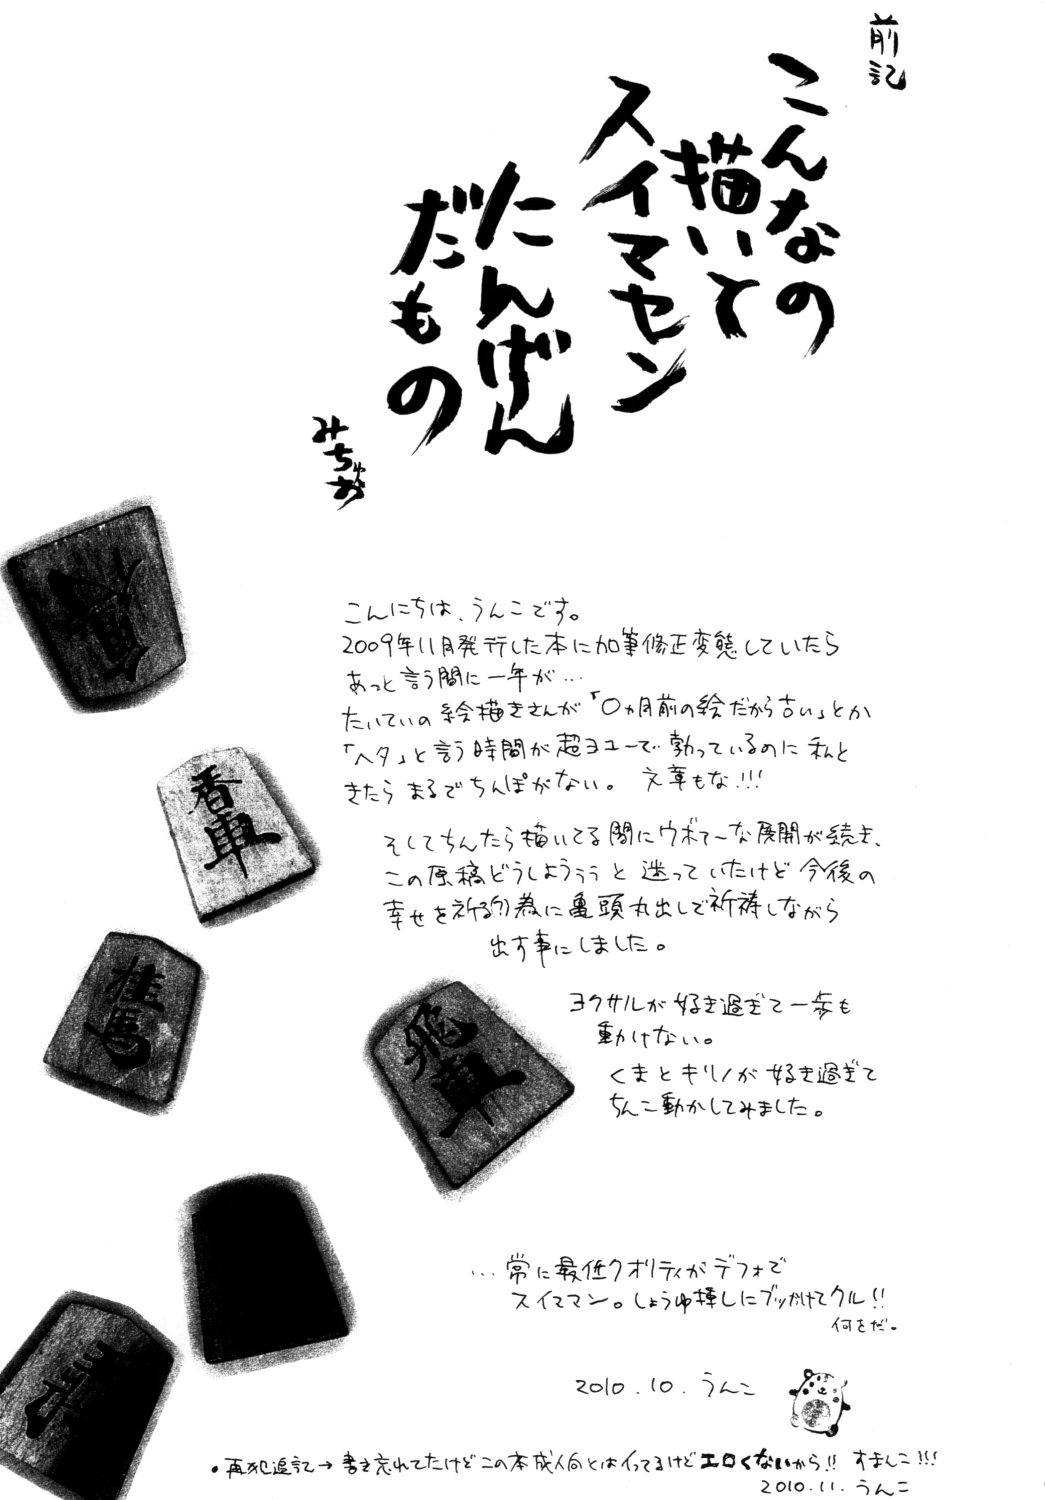 前記
こんなの
描いて
スイマセン
たんげん
だもの
みちゅお
こんにちは、うんこです。
2009年11月発行した本に加筆修正変態していたら
あっと言う間に一年が…
たいていの絵描きさんが「〇ヵ月前の絵だから古い」とか
「ヘタ」と言う時間が超ヨユーで勃っているのに私と
きたらまるでちんぽがない。 え、草もな!!!
そしてちんたら描いてる間にウボァーな展開が続き、
この原稿どうしようぅぅと迷っていたけど今後の
幸せを祈る(?)為に亀頭丸出しで祈祷しながら
出す事にしました。
ヨクサルが好き過ぎて一歩も
動けない。
くまとキリノが好き過ぎて
ちんこ動かしてみました。
…常に最低クオリティがデフォで
スイママン。しょうゆ挿しにブッかけてクル!!
何をだ。
2010.10.うんこ
・再犯追記→書き忘れてたけどこの本成人向とはイってるけどエロくないから!! すまんこ!!!
2010.11.うんこ
香車
桂馬
飛車